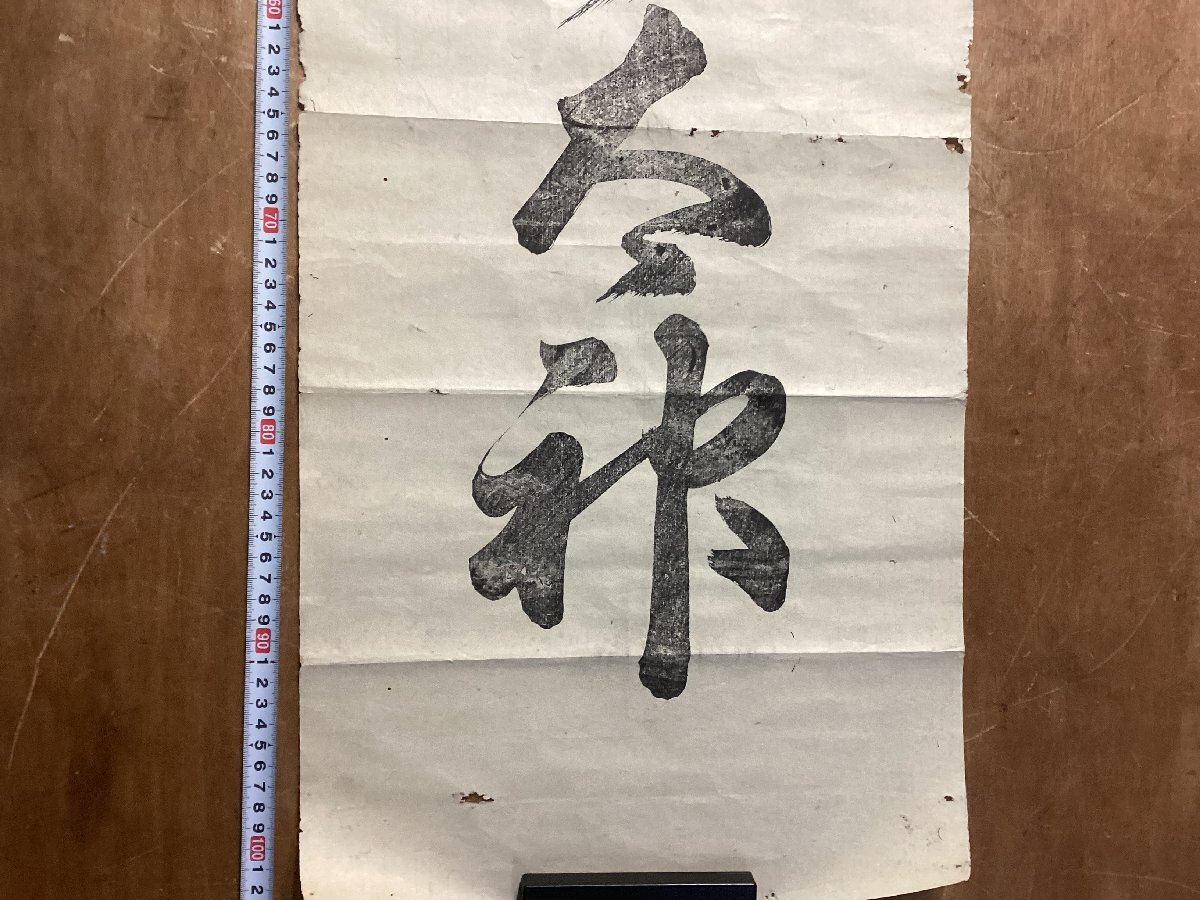 神
60 1 2 3 4 5 6 7 8 9 70 1 2 3 4 5 6 7 8 9 80 1 2 3 4 5 6 7 8 9 90 1 2 3 4 5 6 7 8 9 100 1 2